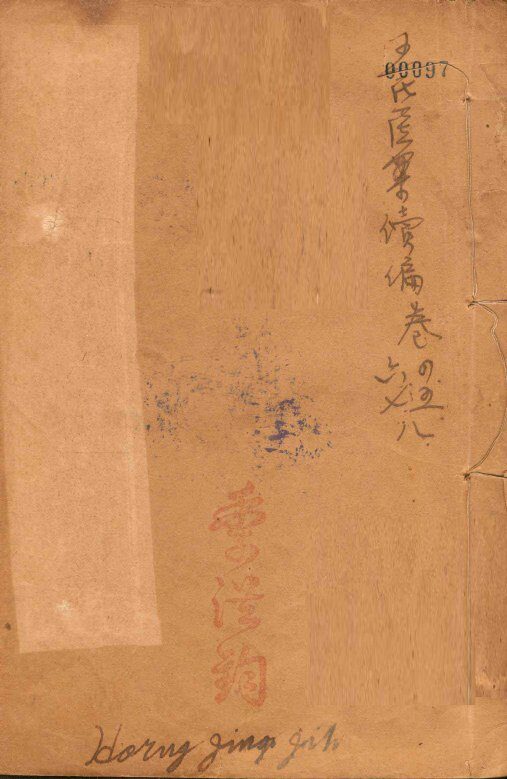 00097
王氏医案續編卷四五
六七八
Horng Jing Jih